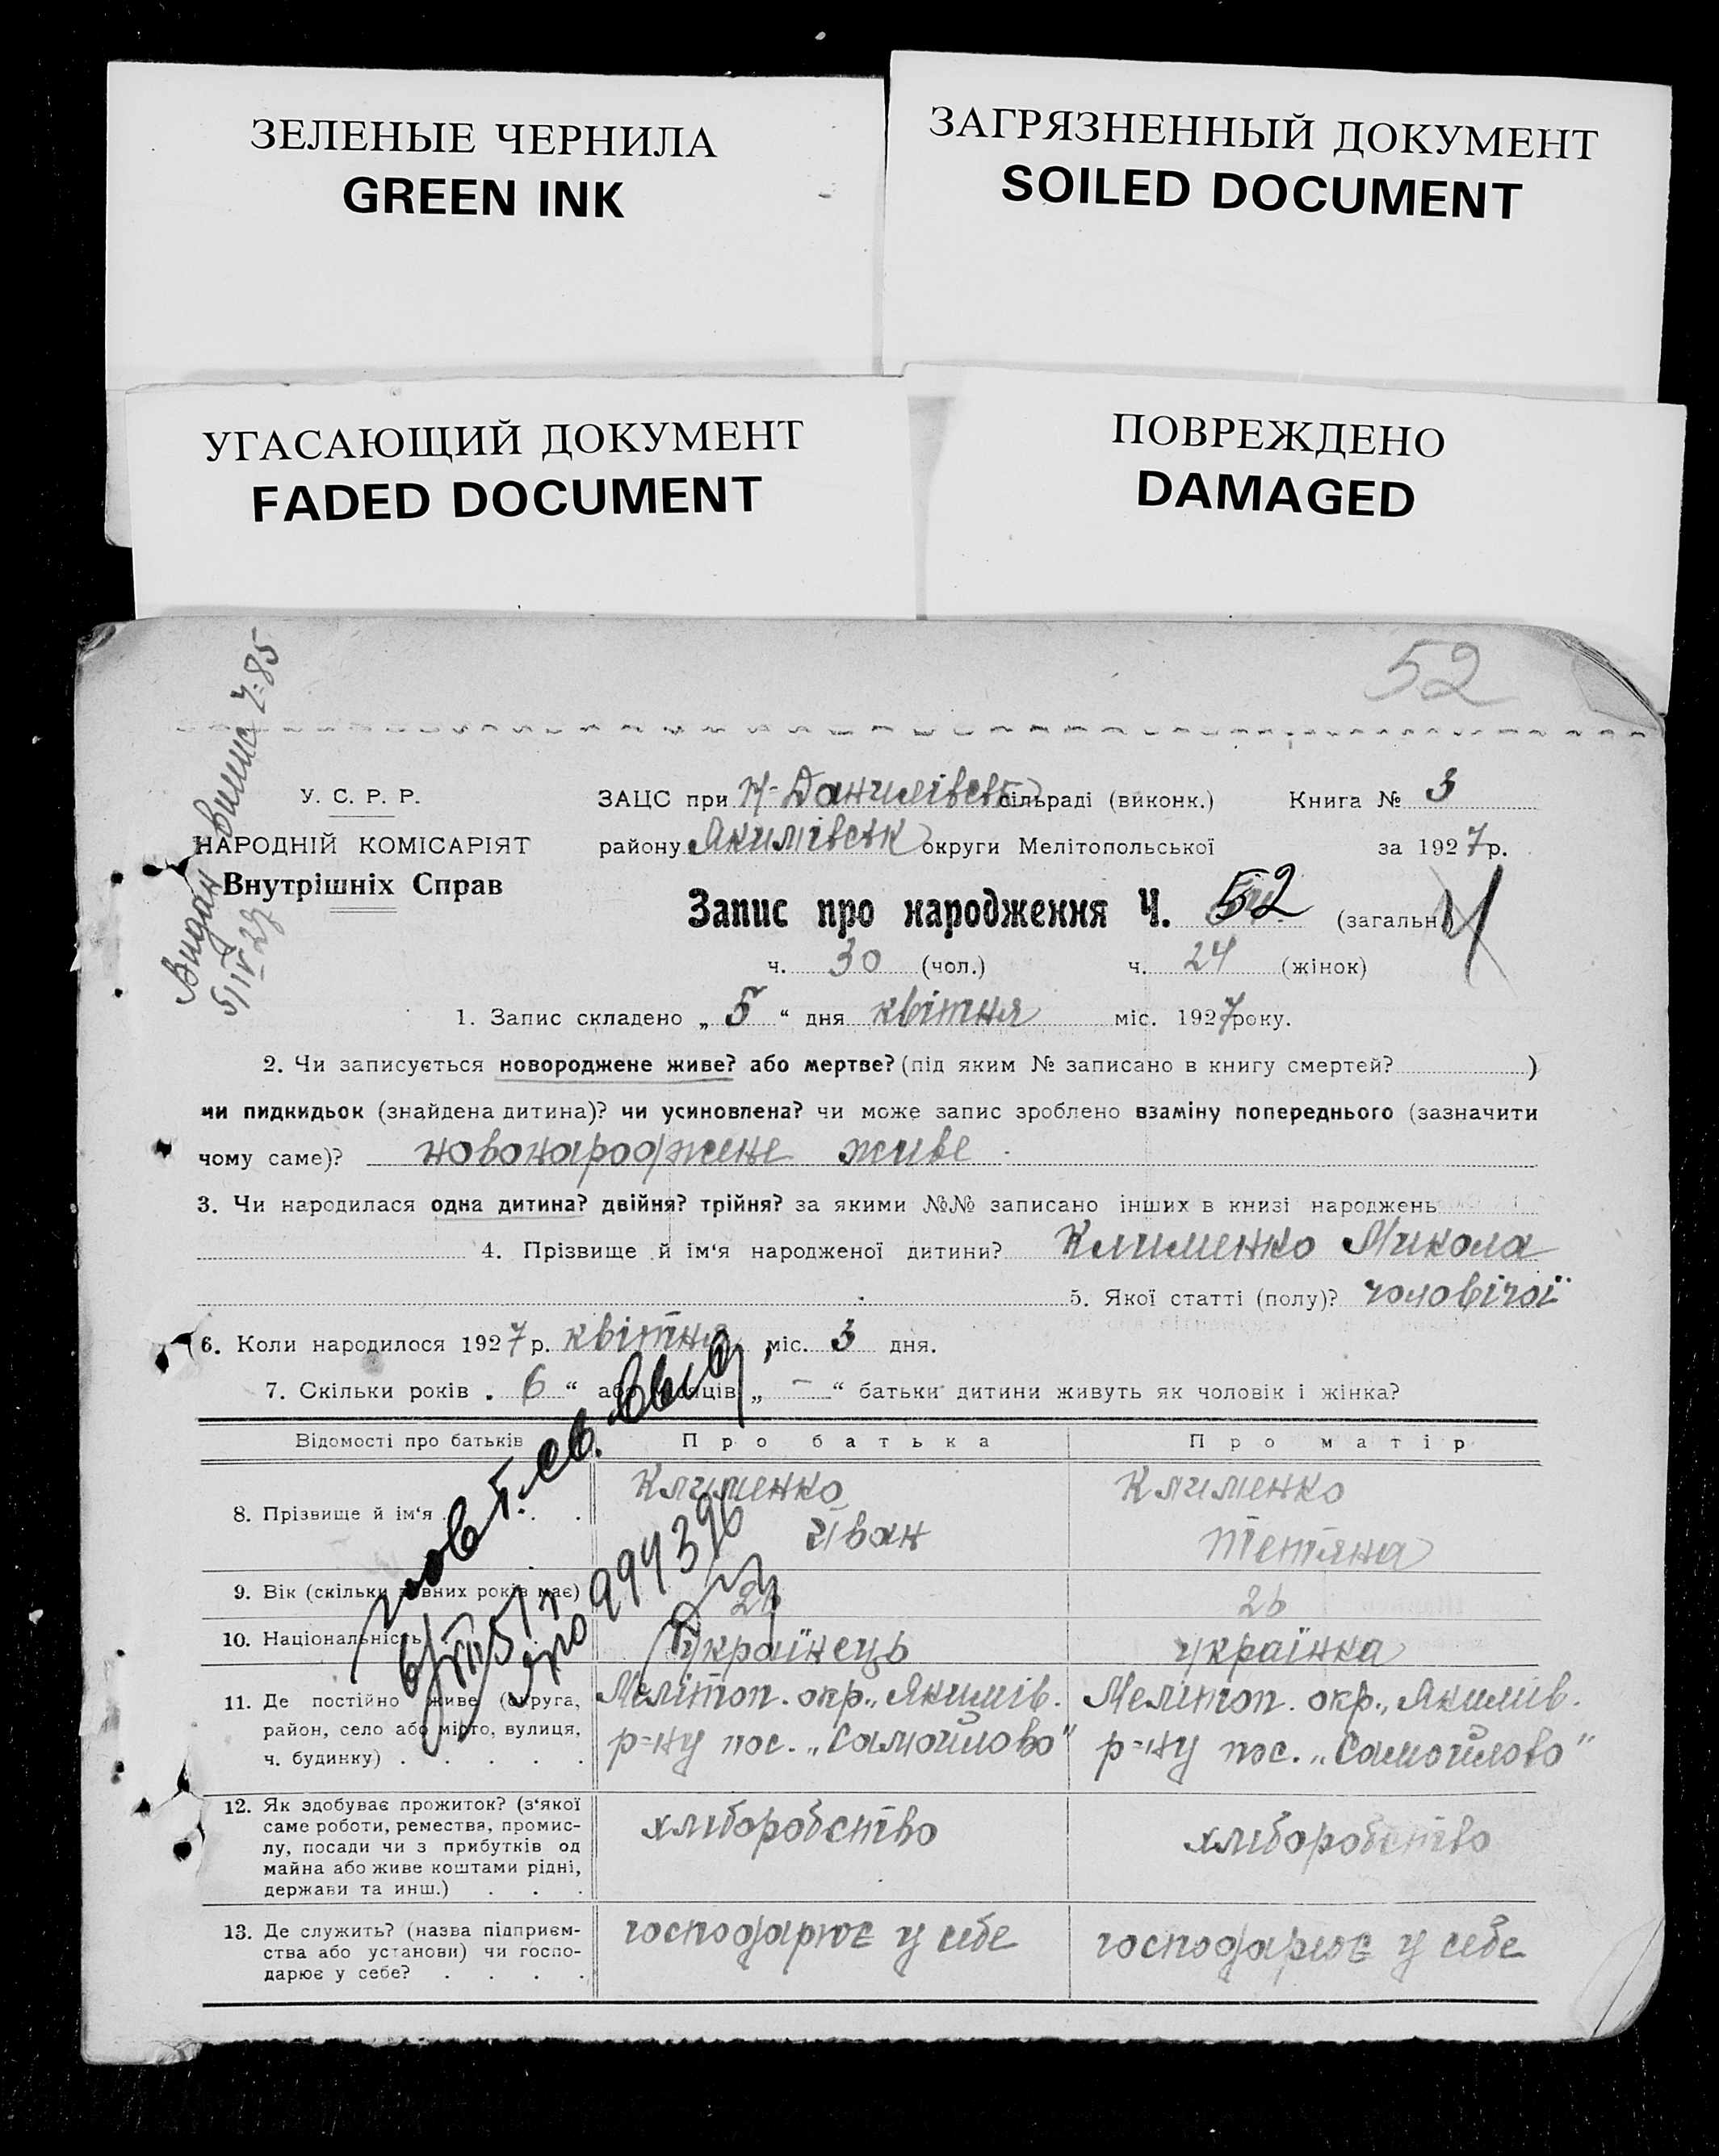 ЗЕЛЕНЫЕ ЧЕРНИЛА
GREEN INK
ЗАГРЯЗНЕННЫЙ ДОКУМЕНТ
SOILED DOCUMENT
УГАСАЮЩИЙ ДОКУМЕНТ
FADED DOCUMENT
ПОВРЕЖДЕНО
DAMAGED
52
Видан 4-85
5/IV 27
У. С. Р. Р.
НАРОДНІЙ КОМІСАРІЯТ
Внутрішніх Справ
ЗАЦС при Н-Данилівськ сільраді (виконк.) Книга № 3
району Якимівськ округи Мелітопольської за 1927 р.
Запис про народження Ч. 52 (загальн.)
ч. 30 (чол.) ч. 24 (жінок)
1. Запис складено „ 5 “ дня квітня міс. 1927 року.
2. Чи записується новороджене живе? або мертве? (під яким № записано в книгу смертей? )
чи пидкидьок (знайдена дитина)? чи усиновлена? чи може запис зроблено взаміну попереднього (зазначити
чому саме)? новонароджене живе
3. Чи народилася одна дитина? двійня? трійня? за якими №№ записано інших в книзі народжень
4. Прізвище й ім‘я народженої дитини? Клименко Микола
5. Якої статті (полу)? чоловічої
6. Коли народилося 1927 р. квітня міс. 3 дня.
7. Скільки років „ 6 “ або місяців „ — “ батьки дитини живуть як чоловік і жінка?
Відомості про батьків Про батька Про матір
8. Прізвище й ім‘я . . . Клименко Іван Клименко Тетяна
9. Вік (скільки повних років має) 26
10. Національність українець українка
11. Де постійно живе (округа, район, село або місто, вулиця, ч. будинку) . . . . . Мелітоп. окр., Якимів. р=ну пос. „Самойлово” Мелітоп. окр., Якимів. р=ну пос. „Самойлово”
12. Як здобуває прожиток? (з‘якої саме роботи, ремества, промислу, посади чи з прибутків од майна або живе коштами рідні, держави та инш.) . . . хліборобство хліборобство
13. Де служить? (назва підприємства або установи) чи господарює у себе? . . . . господарює у себе господарює у себе